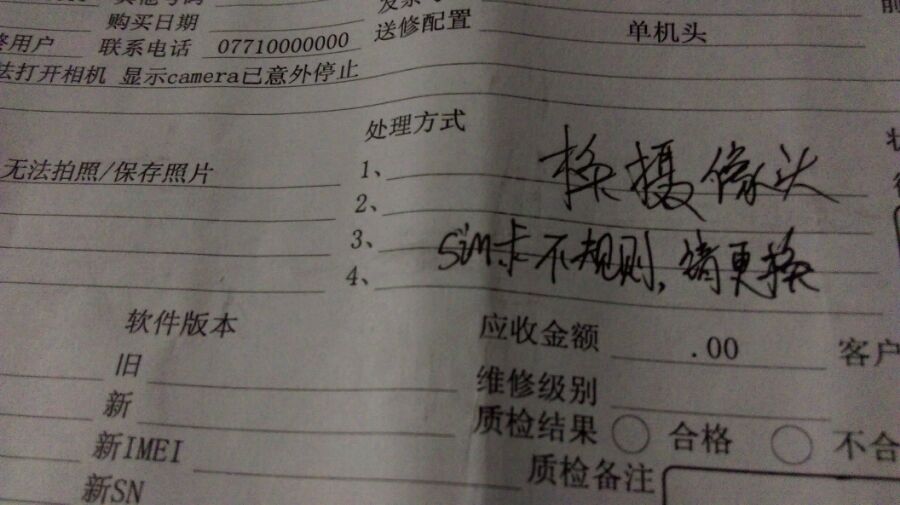 其他号码
购买日期
送修配置 单机头
联系电话 07710000000
打开相机 显示camera已意外停止
处理方式
无法拍照/保存照片
1、 换摄像头
2、
3、 sim卡不规则,请更换
4、
软件版本
应收金额 .00 客户
旧
维修级别
新
质检结果 合格 不合
新IMEI
质检备注
新SN